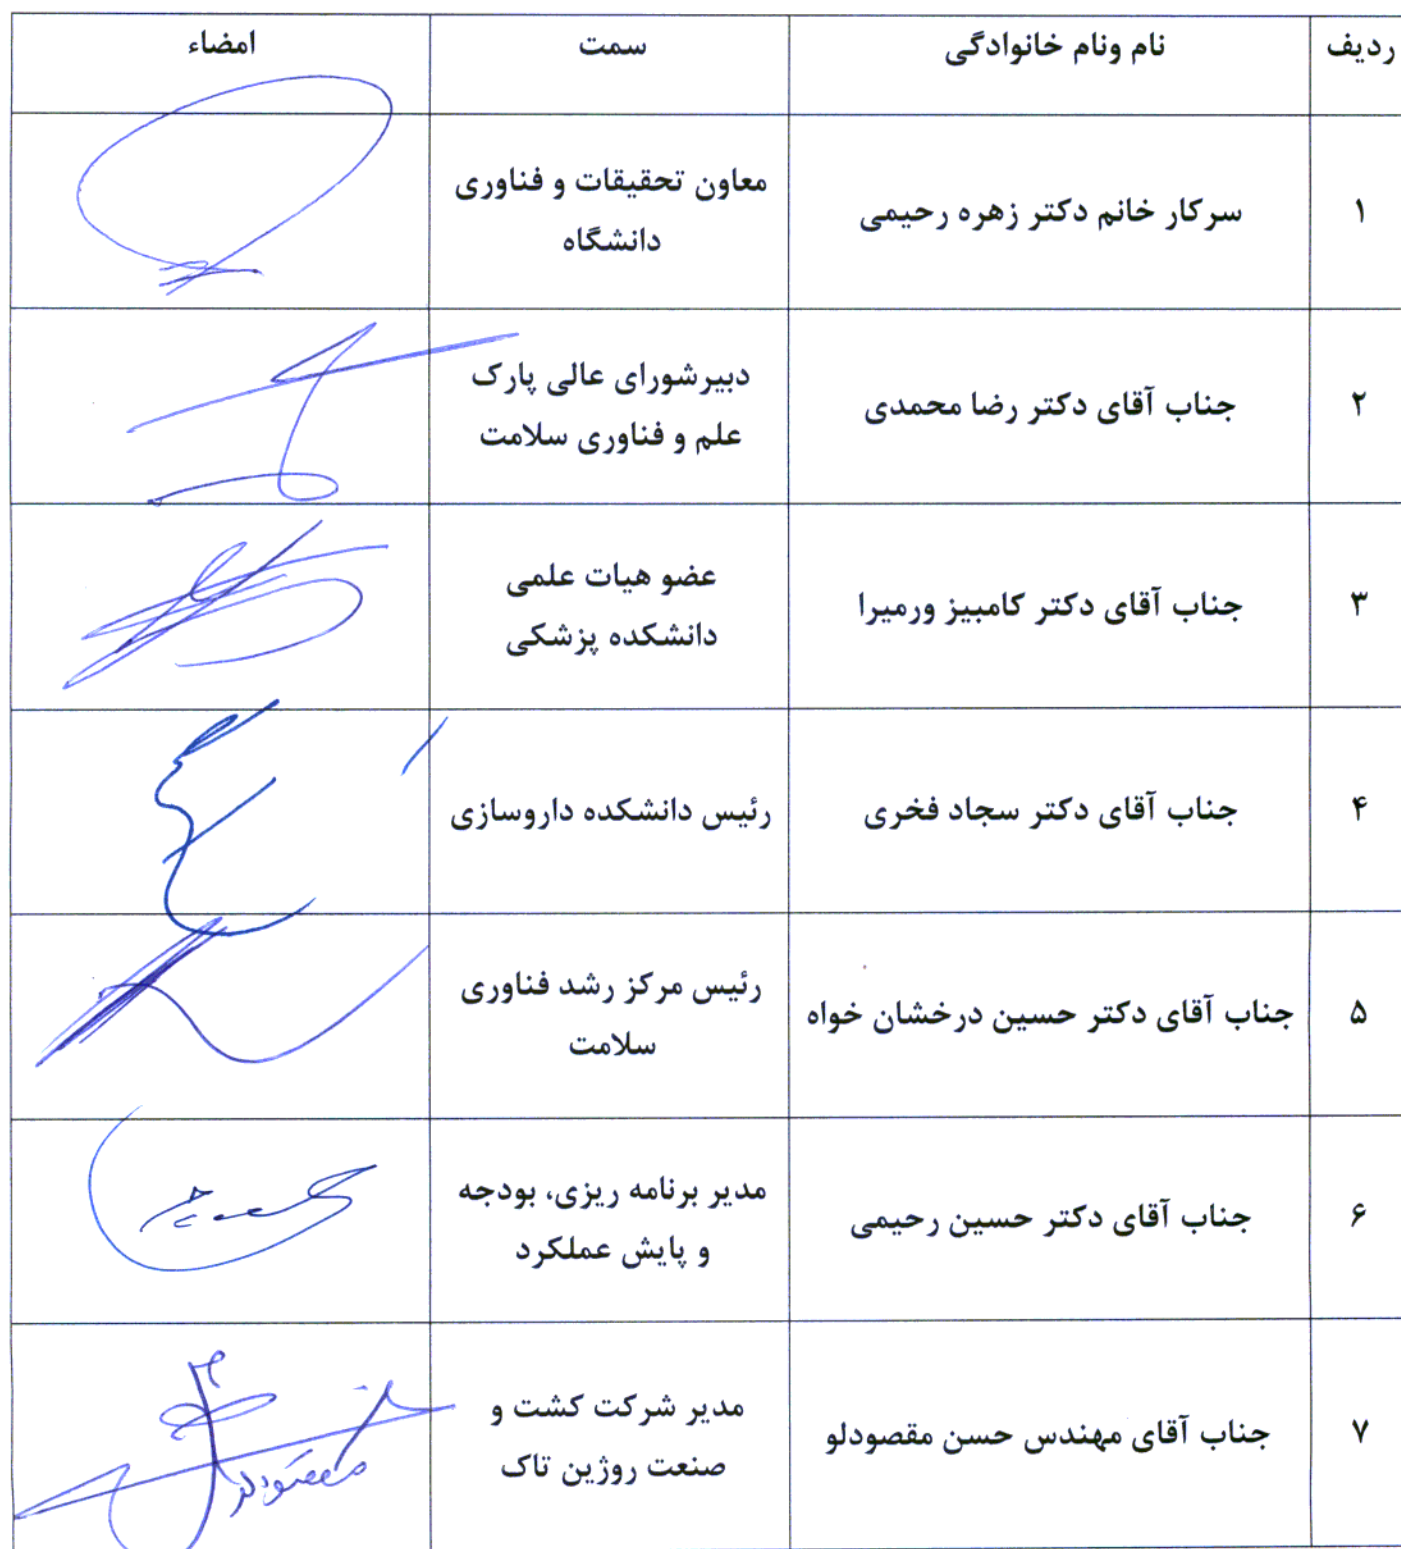 ردیف
نام ونام خانوادگی
سمت
امضاء
۱
سرکار خانم دکتر زهره رحیمی
معاون تحقیقات و فناوری
دانشگاه
۲
جناب آقای دکتر رضا محمدی
دبیرشورای عالی پارک
علم و فناوری سلامت
۳
جناب آقای دکتر کامبیز ورمیرا
عضو هیات علمی
دانشکده پزشکی
۴
جناب آقای دکتر سجاد فخری
رئیس دانشکده داروسازی
۵
جناب آقای دکتر حسین درخشان خواه
رئیس مرکز رشد فناوری
سلامت
۶
جناب آقای دکتر حسین رحیمی
مدیر برنامه ریزی، بودجه
و پایش عملکرد
۷
جناب آقای مهندس حسن مقصودلو
مدیر شرکت کشت و
صنعت روژین تاک
مقصودلو